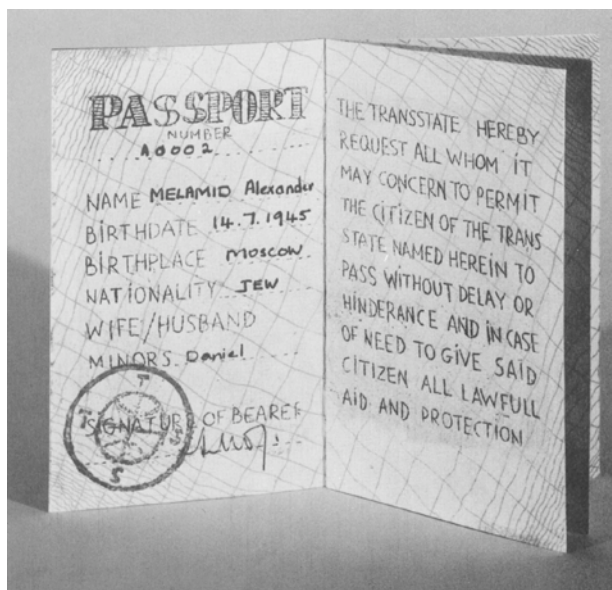 PASSPORT
NUMBER
A0002
NAME MELAMID Alexander
BIRTHDATE 14.7.1945
BIRTHPLACE MOSCOW
NATIONALITY JEW
WIFE/HUSBAND
MINORS Daniel
SIGNATURE OF BEARER
T
S
THE TRANSSTATE HEREBY
REQUEST ALL WHOM IT
MAY CONCERN TO PERMIT
THE CITIZEN OF THE TRANS
STATE NAMED HEREIN TO
PASS WITHOUT DELAY OR
HINDERANCE AND IN CASE
OF NEED TO GIVE SAID
CITIZEN ALL LAWFULL
AID AND PROTECTION